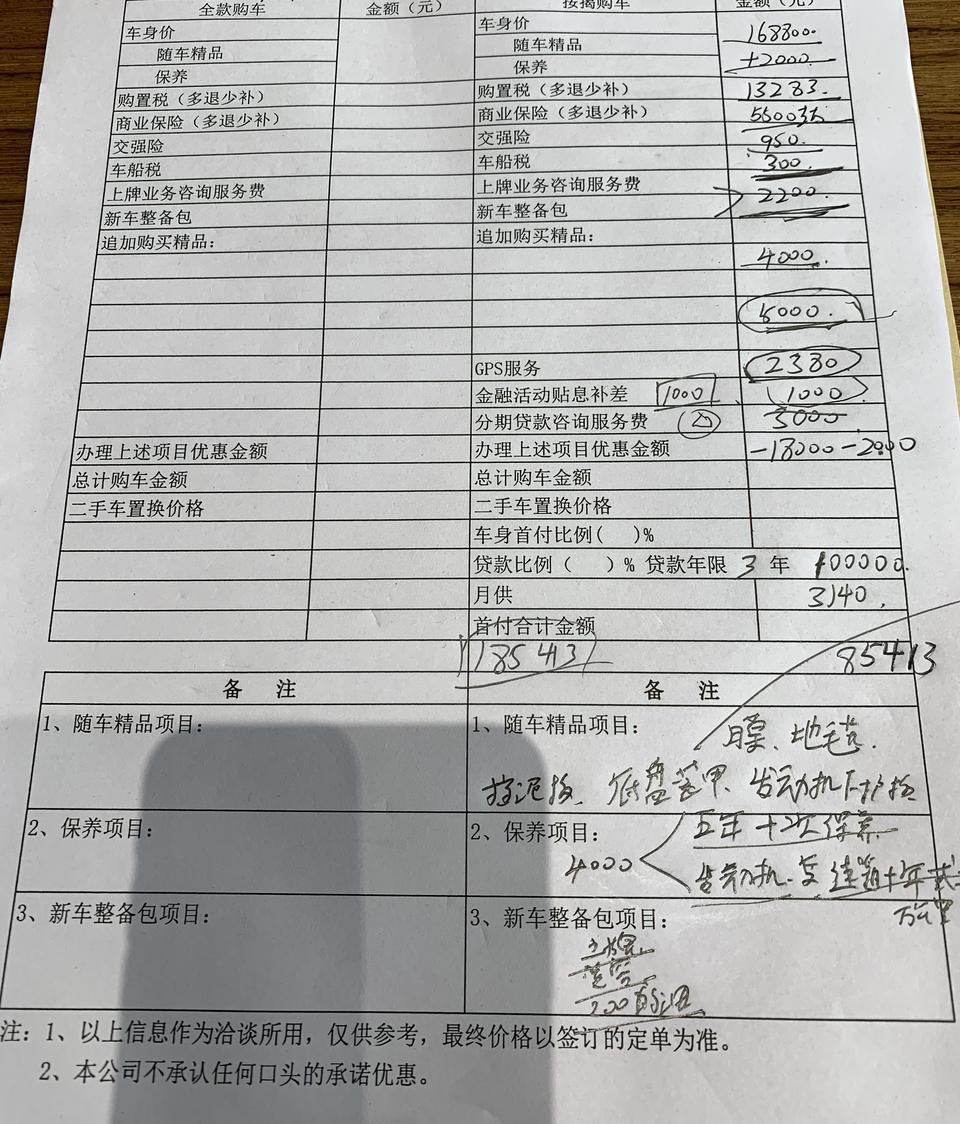 全款购车 金额（元） 按揭购车 金额（元）
车身价 车身价 168800.
随车精品 随车精品
保养 保养 +2000.
购置税（多退少补） 购置税（多退少补） 13283.
商业保险（多退少补） 商业保险（多退少补） 5500
交强险 交强险 950.
车船税 车船税 300.
上牌业务咨询服务费 上牌业务咨询服务费 2200.
新车整备包 新车整备包
追加购买精品： 追加购买精品：
4000.
5000.
GPS服务 2380
金融活动贴息补差 1000 1000
分期贷款咨询服务费 3000
办理上述项目优惠金额 办理上述项目优惠金额 -18000-2000
总计购车金额 总计购车金额
二手车置换价格 二手车置换价格
车身首付比例( )%
贷款比例（ ）% 贷款年限 3 年 100000.
月供 3140.
首付合计金额
185413 85413
备 注 备 注
1、随车精品项目： 1、随车精品项目： 膜、地毯.
挡泥板、底盘装甲、发动机下护板
2、保养项目： 2、保养项目： 五年十次保养
4000 发动机、变速箱十年
万公里
3、新车整备包项目： 3、新车整备包项目：
注：1、以上信息作为洽谈所用，仅供参考，最终价格以签订的定单为准。
2、本公司不承认任何口头的承诺优惠。